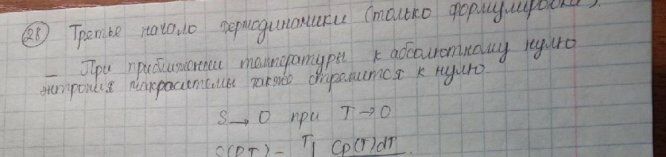 28 Третье начало термодинамики (только формулировка).
– При приближении температуры к абсолютному нулю
энтропия макросистемы также стремится к нулю
S → 0 при T → 0
S(P,T) = T∫ Cp(T)dT